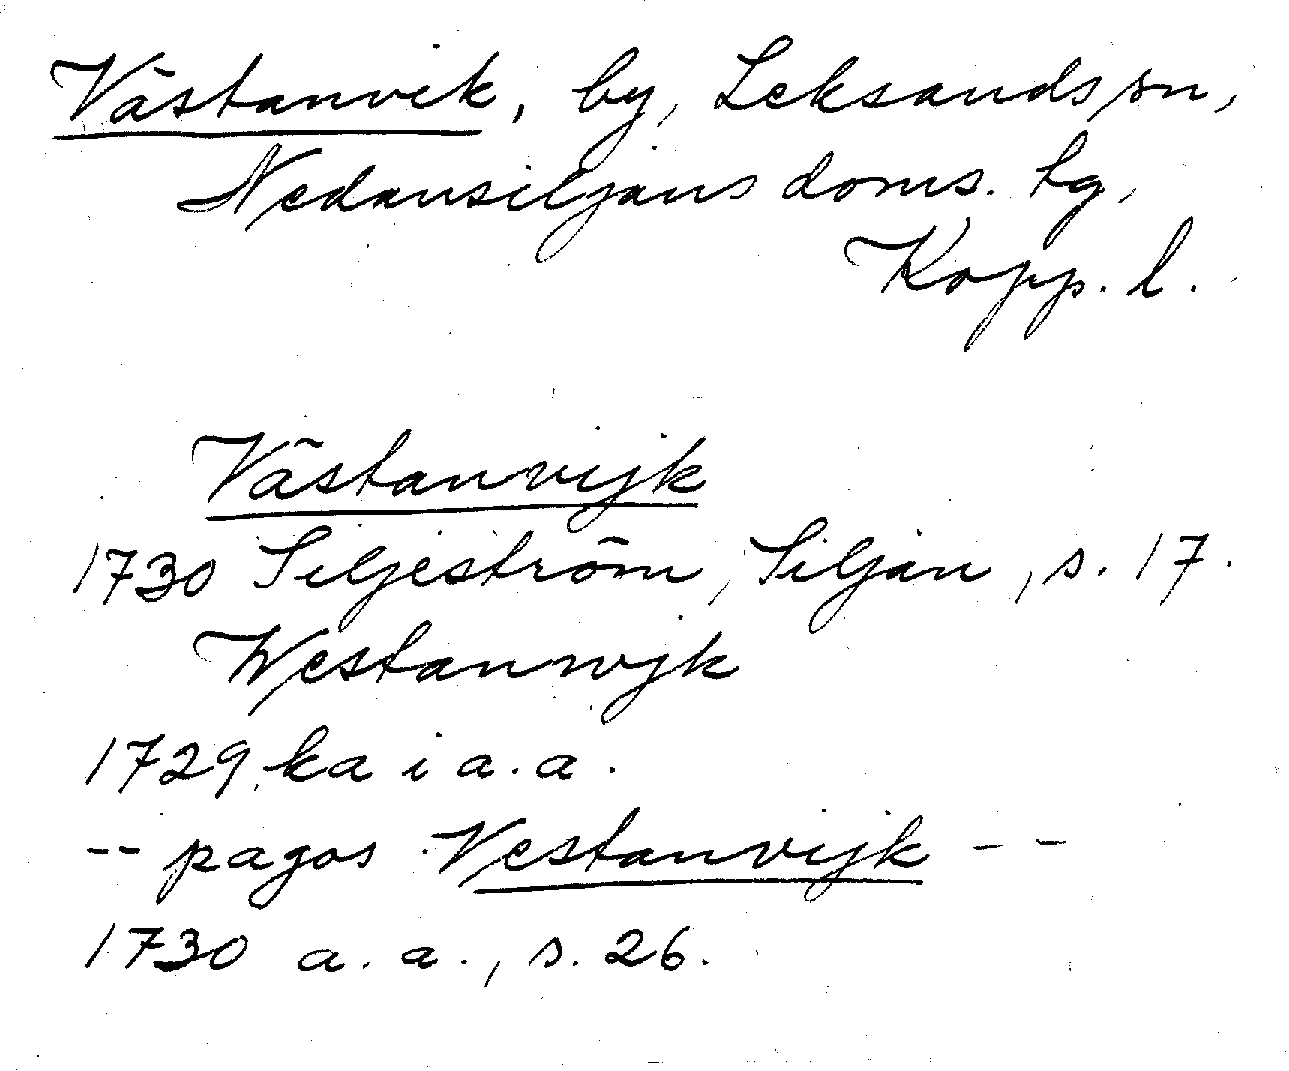 Västanvik, by, Leksands sn,
Nedansiljans doms. tg,
Kopp. l.
Västanvijk
1730 Siljeström, Siljan, s. 17.
Westanwjk
1729 ka i a. a.
-- pagos Vestanvijk --
1730 a. a., s. 26.